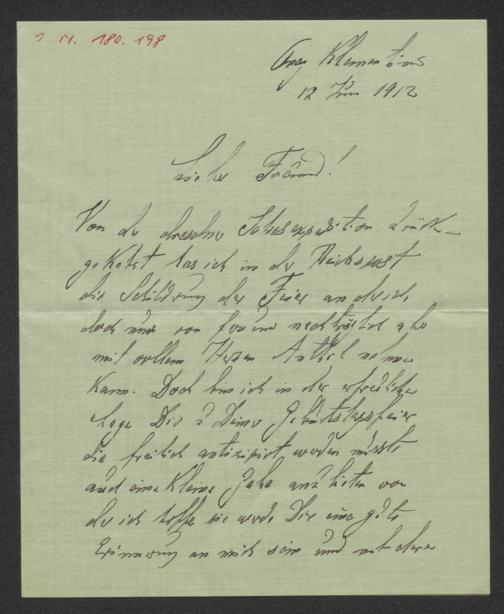 I. N. 180.198
Prag Klementinum
12 Juni 1912
Lieber Freund!
Von der Dresdner zurück-
gekehrt las ich in der Reichspost
die Schilderung der Feier an der ich
doch nur von ferne nachträglich aber
mit vollem Herzen Anteil nehmen
kann. Doch bin ich in der erfreulichen
Lage Dir z Deiner Geburtstagsfeier
die freilich antizipirt werden müsste
auch eine kleine Gabe anzubieten von
der ich hoffe sie werde Dir eine gute
Erinnerung an mich sein und mit der